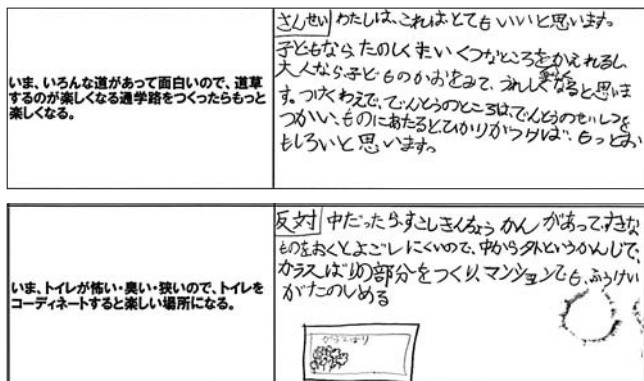 いま、いろんな道があって面白いので、道草
するのが楽しくなる通学路をつくったらもっと
楽しくなる。
さんせい わたしは、これはとてもいいと思います。
子どもなら、たのしくたいくつなところをかえれるし、
大人なら、子どものかおをみて、うれしくなると思いま
す。つけくわえで、でんとうのところは、でんとうのせいしつを
つかい、ものにあたるとひかりがつけば、もっとお
もしろいと思います。
いま、トイレが怖い・臭い・狭いので、トイレを
コーディネートすると楽しい場所になる。
反対 中だったら、すこしきんちょうかんがあって、すきな
ものをおくとよごしにくいので、中から外というかんじで、
カラスばりの部分をつくり、マンションでも、ふうけい
がたのしめる
がらすばり